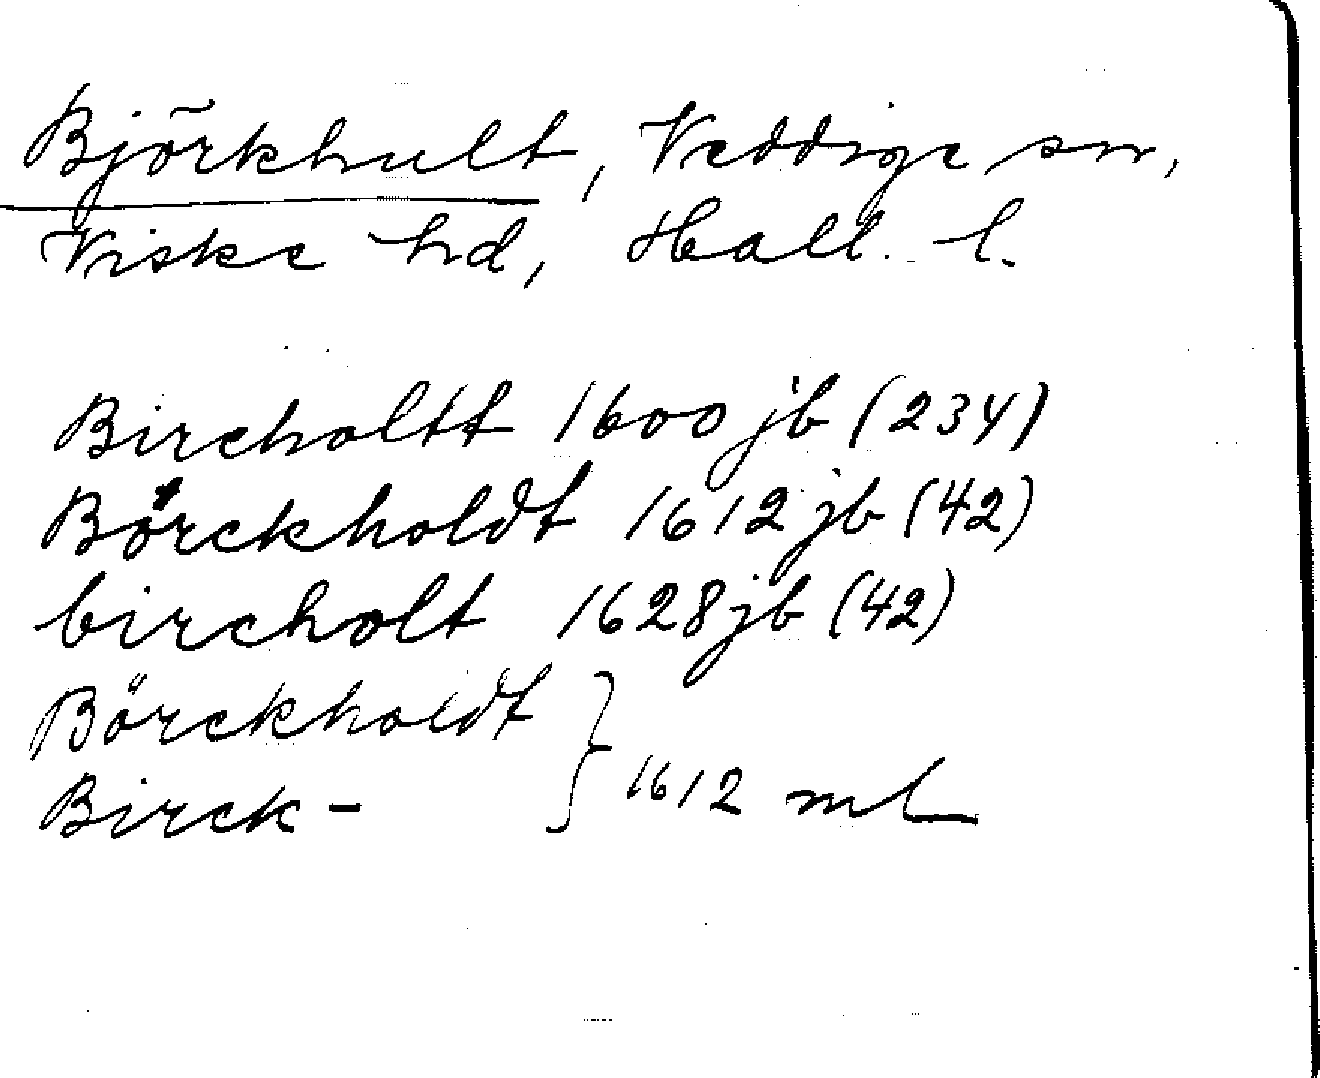 Björkhult, Veddige sn,
Viske hd, Hall. l.
Bircholtt 1600 jb (234)
Börckholdt 1612 jb (42)
bircholt 1628 jb (42)
Börckholdt
Birck- } 1612 ml